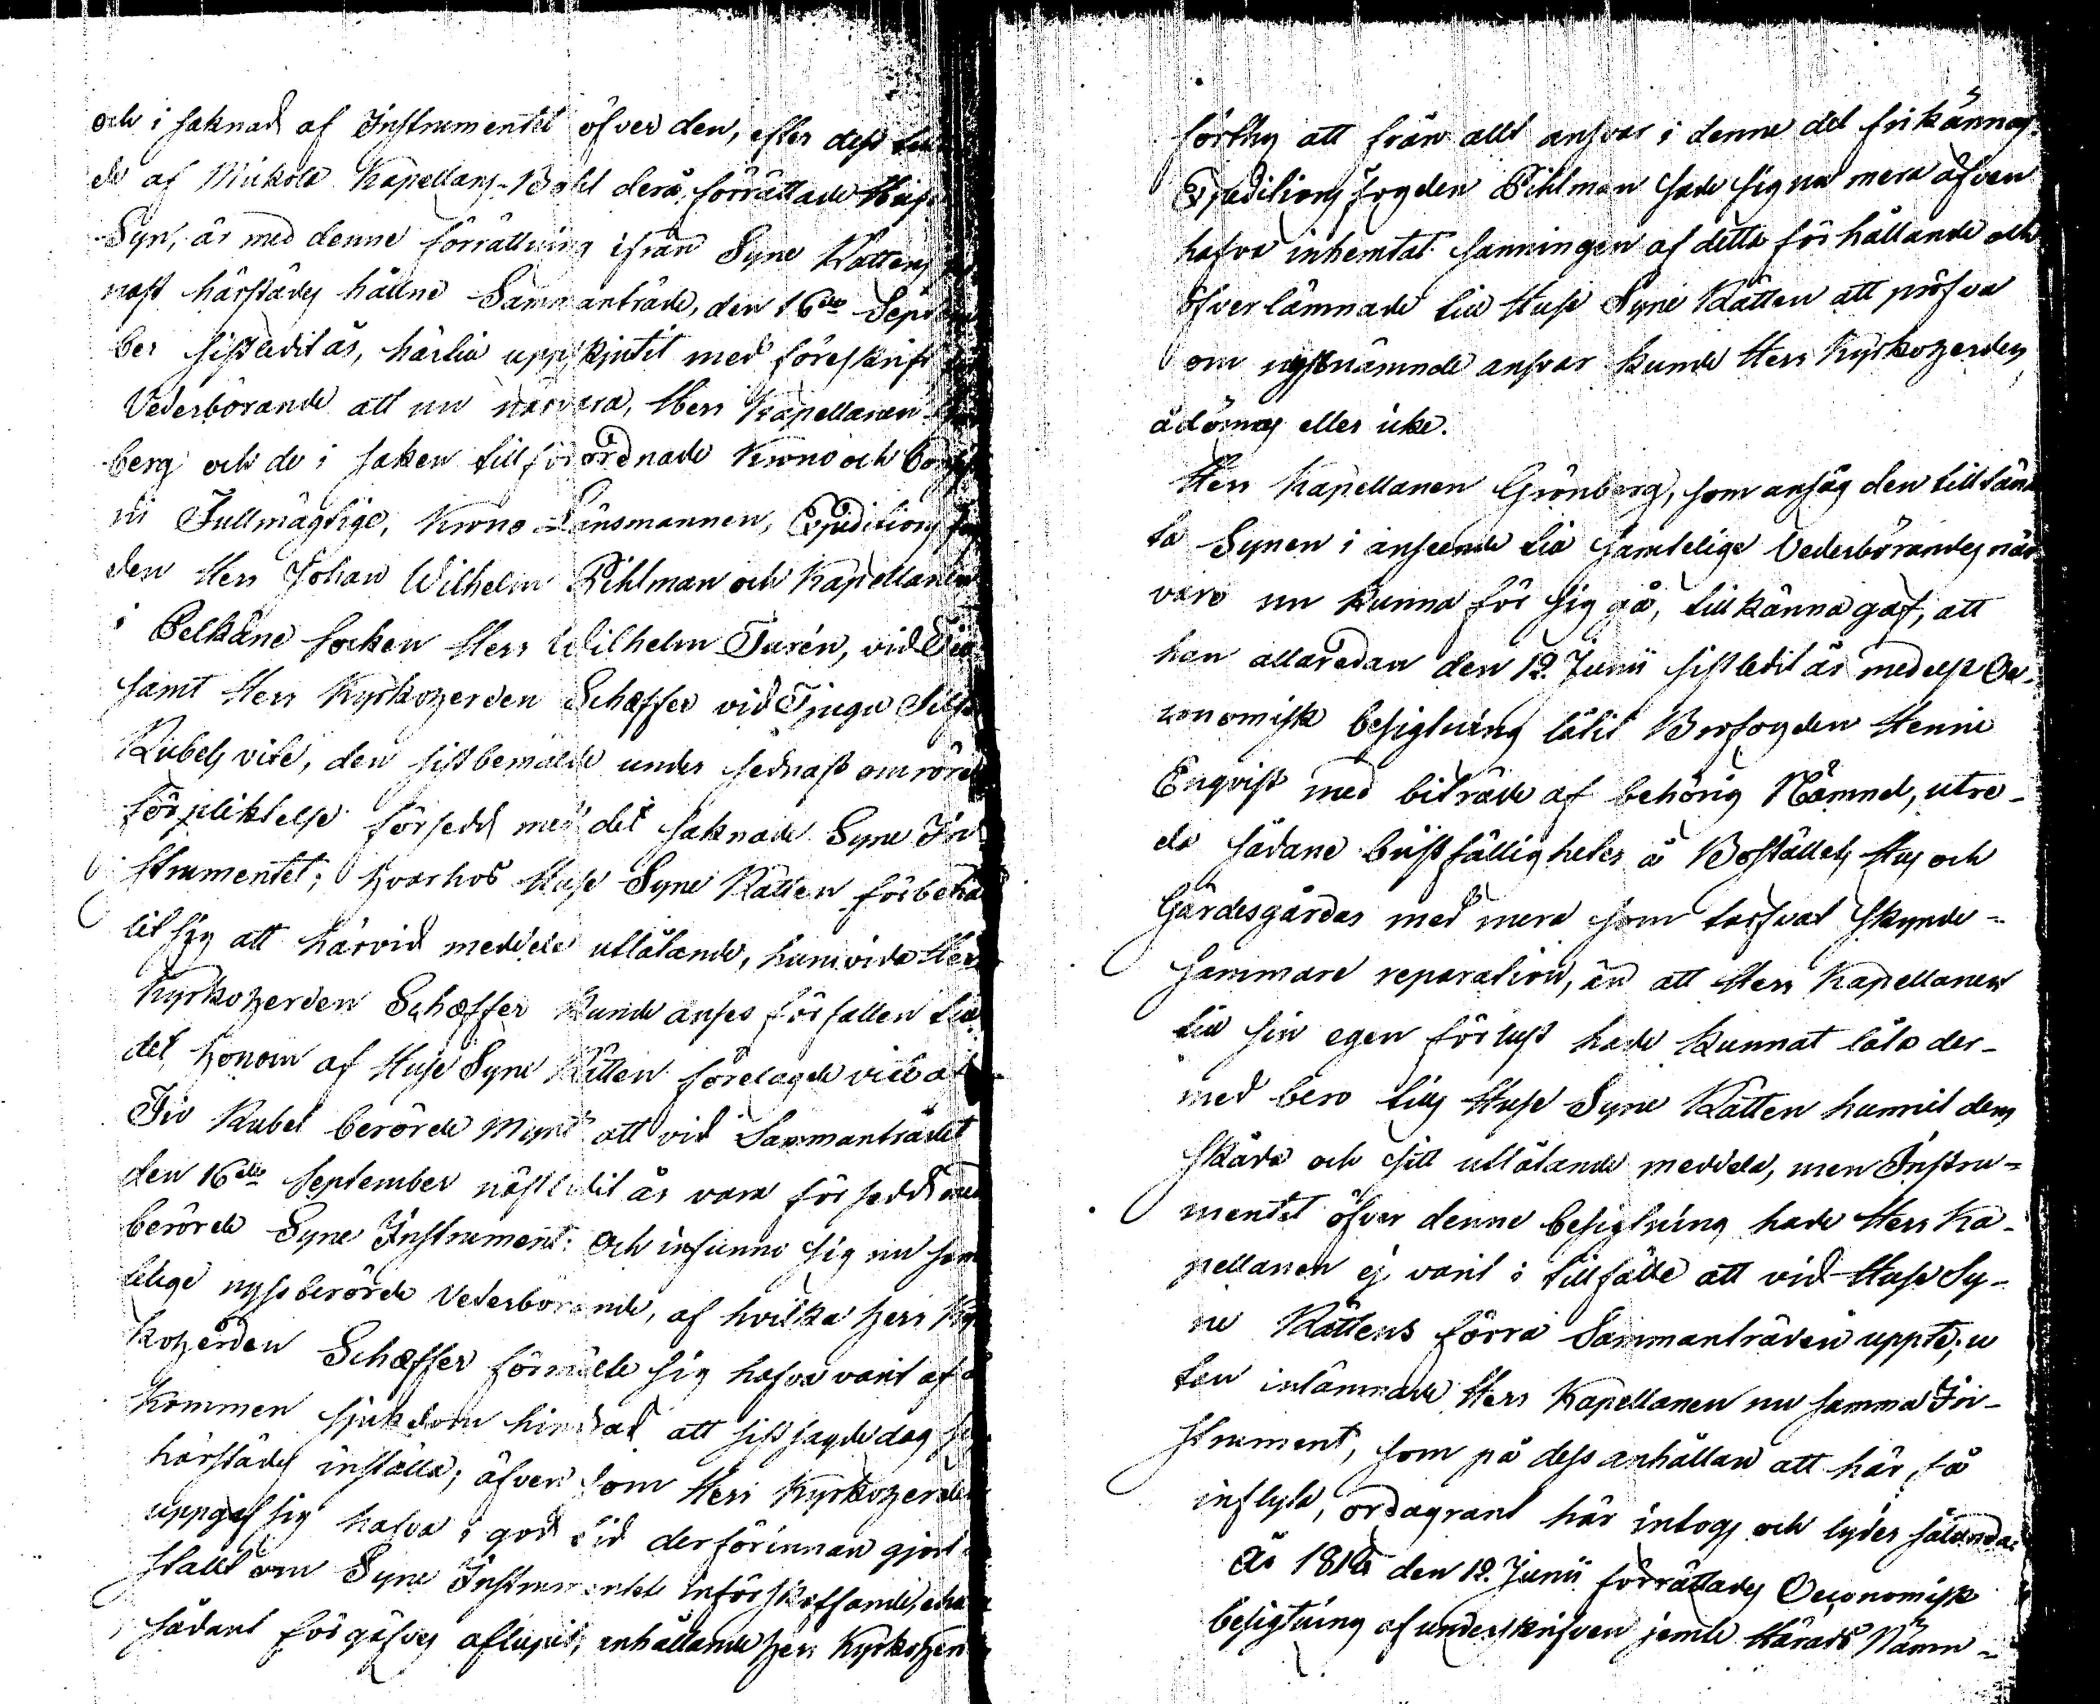 och i saknad af Instrumentet öfver den, efter dess
de af Mickola Kapellans-Bohl derå förrättade Huse
Syn, är med denne förrättning ifrån Syne Rättens
nast härstädes hållne Sammanträde, den 16de Septem
ber sistledit år, härtill uppskjutit med föreskrift
Vederbörande att nu närvara, Herr Kapellanen
berg och de i saken tillförordnade Krono och Consisto
rii Fullmägtige, Krono Länsmannen, Expeditions fog
den Herr Johan Wilhelm Pihlman och Kapellanen
i Pelkäne Socken Herr Wilhelm Turén, vid Tio
samt Herr Kyrkoherden Schæffer vid Tjugu Silfver
Rubels vite, den sistbemälde under sednast omrörde
förpliktelse försedd med det saknade Syne In-
strumentet; hvarhos Huse Syne Rätten förbehål
lit sig att härvid meddela utlåtande, huruvida Herr
Kyrkoherden Schæffer kunde anses förfallen till
det, honom af Huse Syne Rätten förelagde vite af
Tio Rubel berörde Mynt att vid Sammanträdet
den 16de September nästledit år vara försedd med
berörde Syne Instrument. Och infunno sig nu sam
telige nyssberörde Vederbörande, af hvilka Herr Kyr
koherden Schæffer förmälte sig hafva varit af å
kommen sjukdom hindrad att sistsagde dag sig
härstädes inställa; äfven som Herr Kyrkoherden
uppgaf sig hafva i god tid derförinnan gjort an
stallt om Syne Instrumentets införskaffande, ehuru
sådant förgäfves aflupit, anhållande Herr Kyrkoher
förthy att från allt ansvar i denne del frikännas.
Expeditions fogden Pihlman sade sig nu mera äfven
hafva inhemtat sanningen af detta förhållande och
öfverlämnade till Huse Syne Rätten att pröfva
om nyssnämnde ansvar kunde Herr Kyrkoherden
ådömas eller icke.
Herr Kapellanen Grönberg, som ansåg den tilltänk
ta Synen i anseende till samtelige Vederbörandes när
varo nu kunna för sig gå, tillkännagaf, att
han allaredan den 12. Junii sistledit år medelst Oe-
conomisk besigtning låtit Brofogden Henric
Enqvist med biträde af behörig Nämnd, utre-
da sådane bristfälligheter å Boställets Hus och
Gärdesgårdar med mera som tarfvat skynd-
sammare reparation, än att Herr Kapellanen
till sin egen förlust hade kunnat låta der-
med bero tills Huse Syne Rätten hunnit dem
skåda och sitt utlåtande meddela, men Instru-
mentet öfver denne besigtning hade Herr Ka-
pellanen ej varit i tillfälle att vid Huse Sy-
ne Rättens förra Sammanträden uppte; u
tan inlämnade Herr Kapellanen nu samma In-
strument, som på dess anhållan att här få
inflyta, ordagrant här intogs och lyder sålunda:
År 1816 den 12. Junii förrättades Oeconomisk
besigtning af underskrifven jemte Härads Nämn-